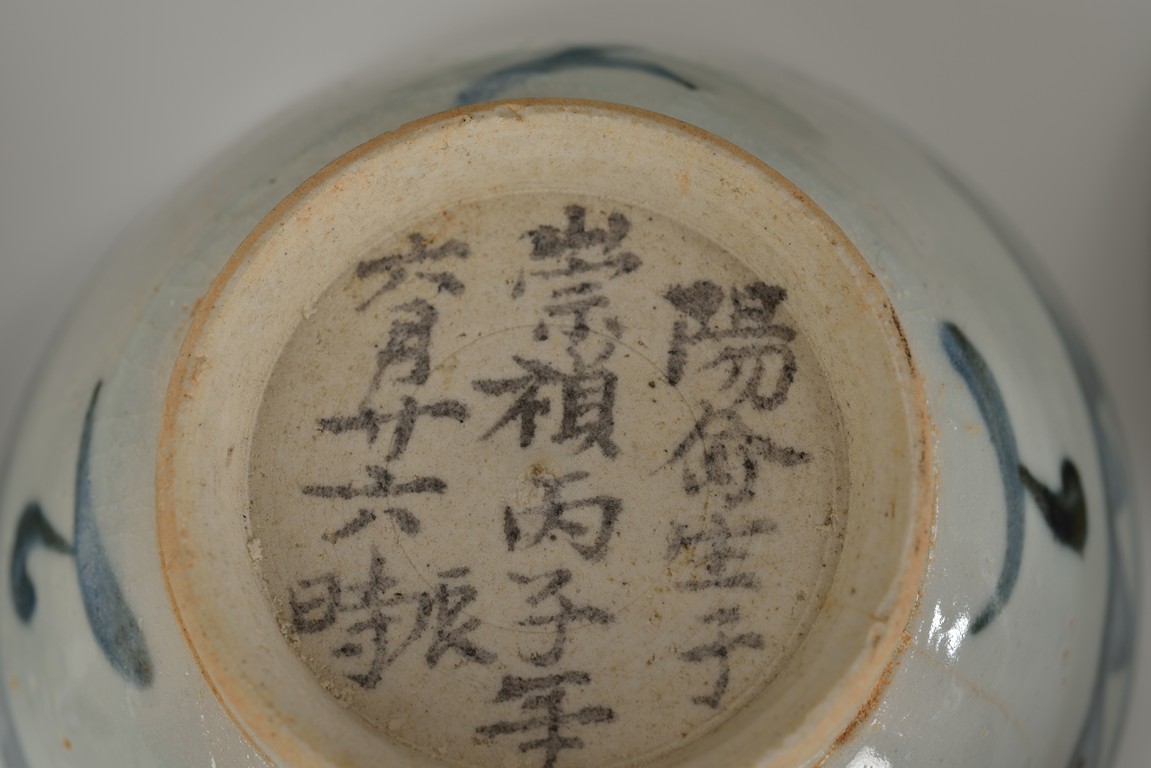 陽命生于
崇禎丙子年
六月廿六辰時